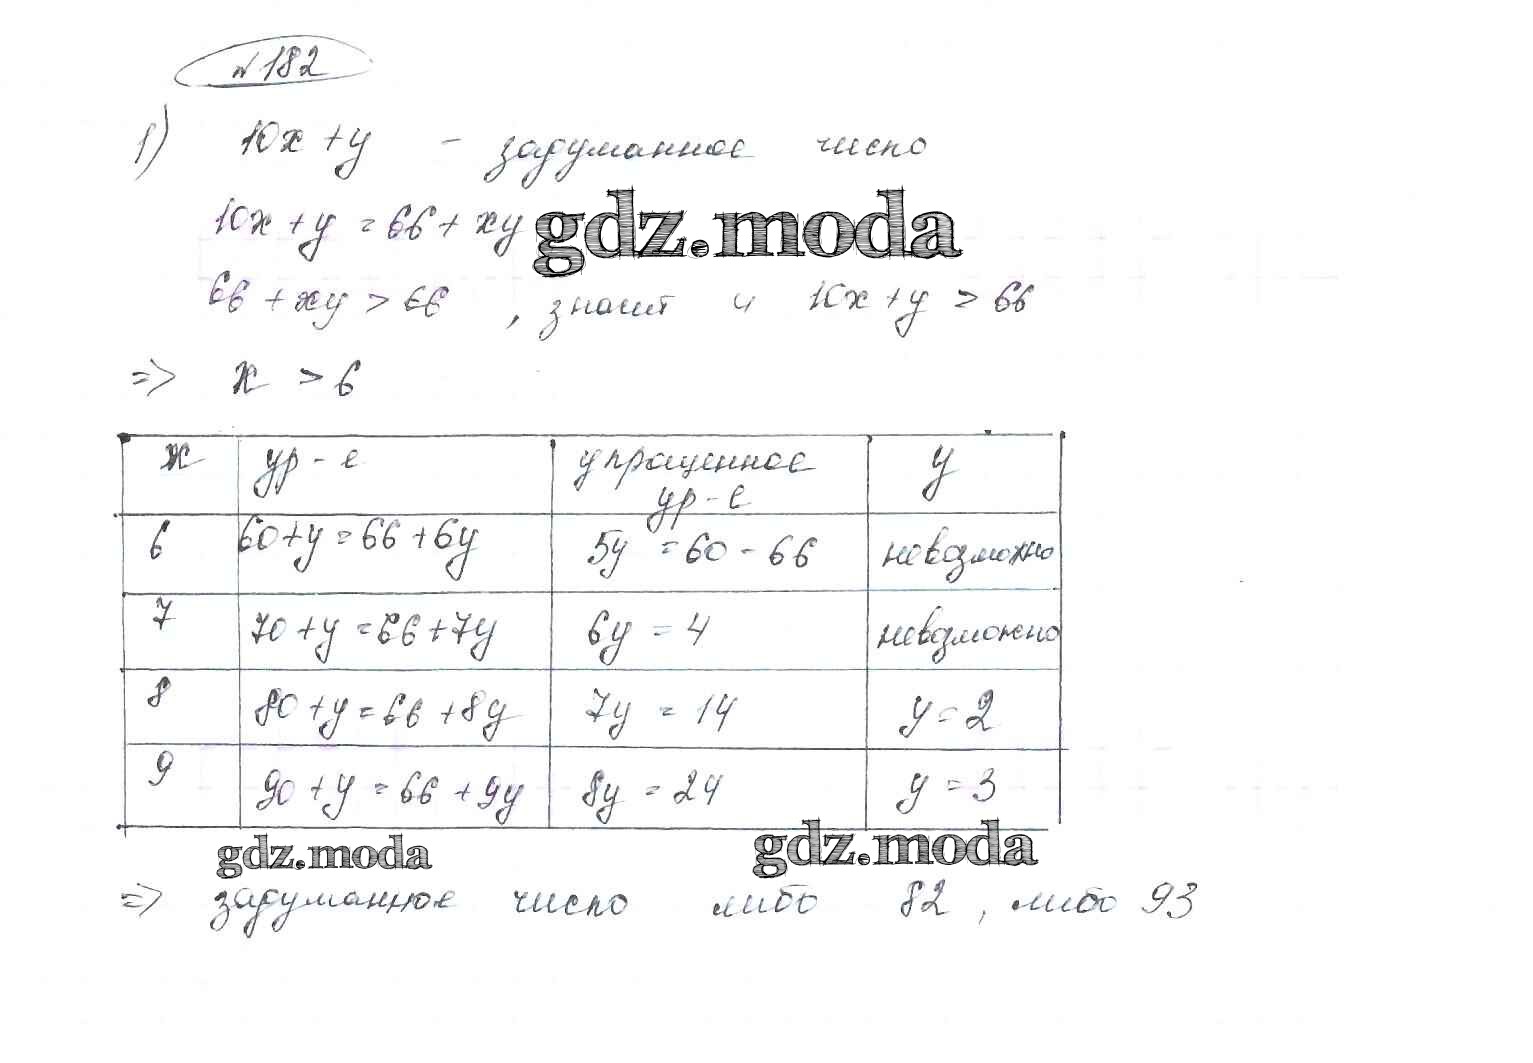 №182
1) 10x + y - задуманное число
10x + y = 66 + xy
gdz.moda
66 + xy > 66 , значит и 10x + y > 66
=> x > 6
x ур-е упрощенное ур-е y
6 60+y=66+6y 5y = 60 - 66 невозможно
7 70+y=66+7y 6y = 4 невозможно
8 80+y=66+8y 7y = 14 y = 2
9 90+y=66+9y 8y = 24 y = 3
gdz.moda gdz.moda
=> задуманное число либо 82, либо 93